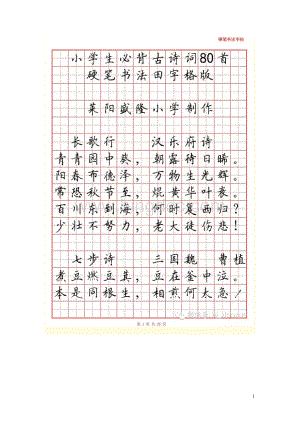 小学生必背古诗词80首
硬笔书法田字格版
莱阳盛隆小学制作
长歌行 汉乐府诗
青青园中葵，朝露待日晞。
阳春布德泽，万物生光辉。
常恐秋节至，焜黄华叶衰。
百川东到海，何时复西归？
少壮不努力，老大徒伤悲！
七步诗 三国魏 曹植
煮豆燃豆萁，豆在釜中泣。
本是同根生，相煎何太急！
1